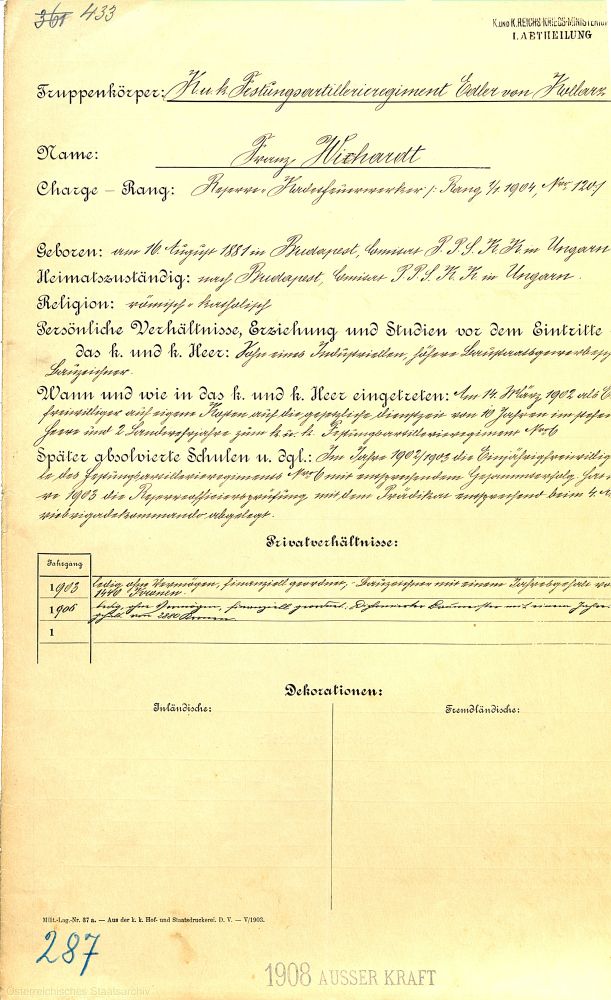 361 433
K. UND K. REICHS KRIEGS-MINISTERIUM
1. ABTHEILUNG
Truppenkörper: K. u. k. Festungsartillerieregiment Edler von Kollarz
Name: Franz Wichardt
Charge – Rang: Reserve-Kadettfeuerwerker /: Rang 1/1 1904, Nor. 120/
Geboren: am 16 August 1881 in Budapest, Comitat P.P.S.K.K. in Ungarn
Heimatszuständig: nach Budapest, Comitat P.P.S.K.K. in Ungarn.
Religion: römisch-katholisch
Persönliche Verhältnisse, Erziehung und Studien vor dem Eintritte
das k. und k. Heer: Sohn eines Industriellen, höhere
Bauzeichner
Wann und wie in das k. und k. Heer eingetreten: Am 14. März 1902 als E
freiwilliger auf eigene Kosten auf die gesetzliche Dienstzeit von 10 Jahren im stehen
Heere und 2 Landwehrjahre zum k. u. k. Festungsartillerieregiment Nor 6
Später absolvierte Schulen u. dgl.: Im Jahre 1902/1903 die Einjährigfreiwillig
le des Festungsartillerieregiments Nor 6 mit entsprechendem Gesammterfolg. Hat
re 1903 die Reserveoffiziersprüfung mit dem Prädikat entsprechend beim 4. A
riebrigadekommando abgelegt.
Privatverhältnisse:
Jahrgang
1903 ledig, ohne Vermögen, finanziell geordnet, Bauzeichner mit einem Jahresgehalt vo
1440 Kronen.
1906 ledig, ohne Vermögen, finanziell geordnet, Baumeister mit einem Jahres
gehalt von Kronen
1
Dekorationen:
Inländische: Fremdländische:
Milit.-Lag.-Nr. 87 a. — Aus der k. k. Hof- und Staatsdruckerei. D. V. — V/1903.
287
1908 AUSSER KRAFT
Österreichisches Staatsarchiv